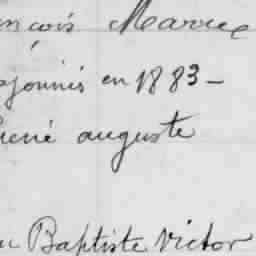 nçois Marie
ajournés en 1883 -
René auguste
Baptiste Victor